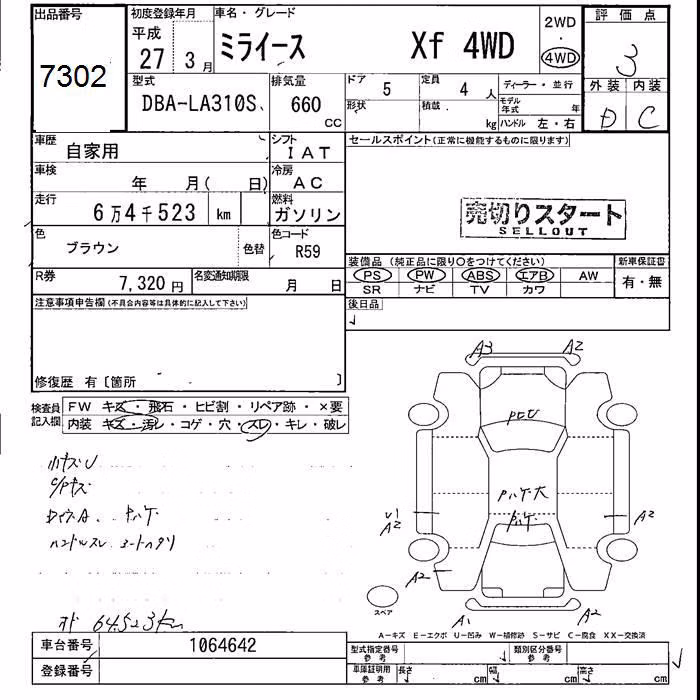 出品番号
7302
初度登録年月
平成
27 3月
車名・グレード
ミライース Xf 4WD
2WD
・
4WD
評価点
3
外装 内装
D C
型式
DBA-LA310S
排気量
660
CC
ドア 5
形状
定員 4 人
積載 kg
ディーラー・並行
モデル年式 年
ハンドル 左・右
車歴
自家用
シフト
IAT
車検
年 月( 日)
冷房
AC
走行
6万4千523 km
燃料
ガソリン
色
ブラウン
色替
色コード
R59
R券
7,320円
名変通知期限
月 日
セールスポイント(正常に機能するものに限ります)
売切りスタート
SELLOUT
装備品(純正品に限り○をつけてください)
PS PW ABS エアB AW
SR ナビ TV カワ
新車保証書
有・無
後日品
注意事項申告欄(不具合内容等は具体的に記入して下さい)
修復歴 有〔箇所 〕
検査員
記入欄
FW キズ・飛石・ヒビ割・リペア跡・×要
内装 キズ・汚レ・コゲ・穴・スレ・キレ・破レ
小キズU
ハンドルスレ
64523km
A3 A2
U1
A2
A2
A2
A1 A2
スペア
A−キズ E−エクボ U−凹み W−補修跡 S−サビ C−腐食 XX−交換済
車台番号 1064642
登録番号
型式指定番号
参考
類別区分番号
参考
車庫証明用
参考
長さ cm 幅 cm 高さ cm